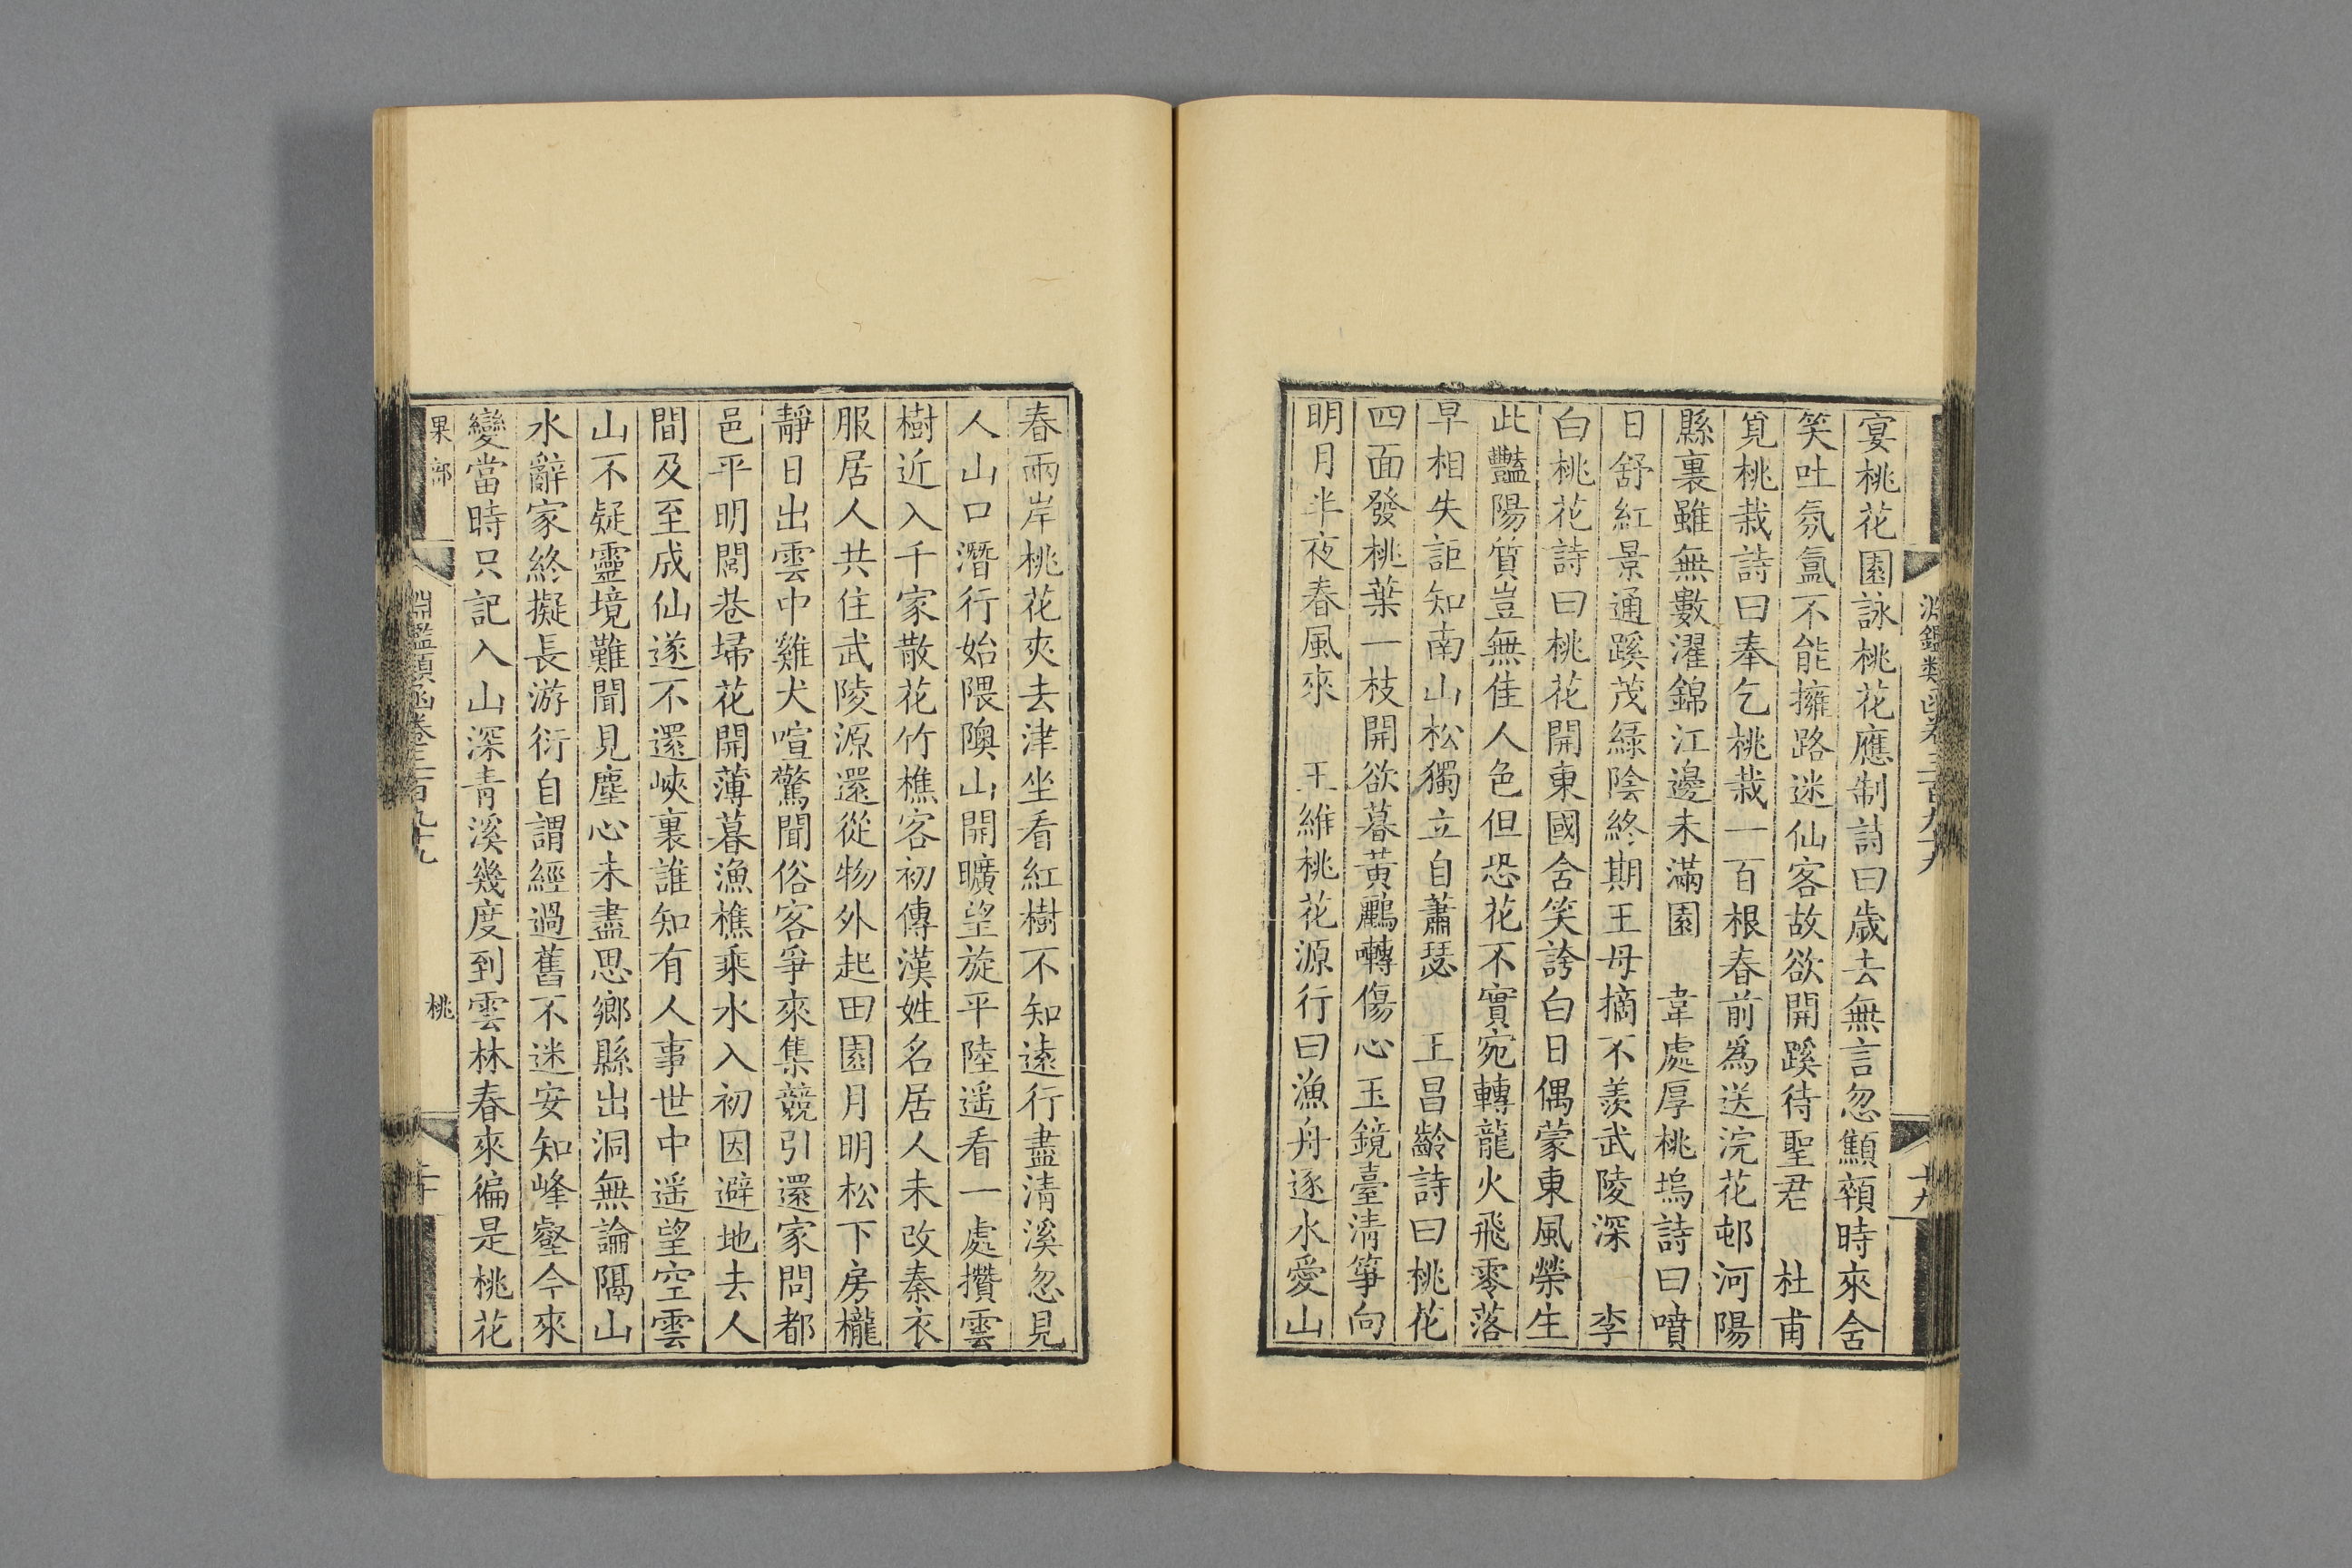 淵鑑類函卷三百九十九
十九
宴桃花園詠桃花應制詩曰歲去無言忽顦顇時來含
笑吐氛氳不能擁路迷仙客故欲開蹊待聖君　杜甫
覓桃栽詩曰奉乞桃栽一百根春前爲送浣花邨河陽
縣裏雖無數濯錦江邊未滿園　韋處厚桃塢詩曰噴
日舒紅景通蹊茂綠陰終期王母摘不羨武陵深　李
白桃花詩曰桃花開東園含笑誇白日偶蒙東風榮生
此豔陽質豈無佳人色但恐花不實宛轉龍火飛零落
早相失詎知南山松獨立自蕭瑟　王昌齡詩曰桃花
四面發桃葉一枝開欲暮黃鸝囀傷心玉鏡臺清箏向
明月半夜春風來　王維桃花源行曰漁舟逐水愛山
春兩岸桃花夾去津坐看紅樹不知遠行盡清溪忽見
人山口潛行始隈隩山開曠望旋平陸遥看一處攢雲
樹近入千家散花竹樵客初傳漢姓名居人未改秦衣
服居人共住武陵源還從物外起田園月明松下房櫳
靜日出雲中雞犬喧驚聞俗客爭來集競引還家問都
邑平明閭巷埽花開薄暮漁樵乘水入初因避地去人
間及至成仙遂不還峽裏誰知有人事世中遥望空雲
山不疑靈境難聞見塵心未盡思鄉縣出洞無論隔山
水辭家終擬長游衍自謂經過舊不迷安知峰壑今來
變當時只記入山深青溪幾度到雲林春來徧是桃花
果部
淵鑑類函卷三百九十九
桃
二十